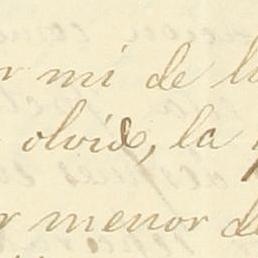 r mi de l
olvido, la
r menor de